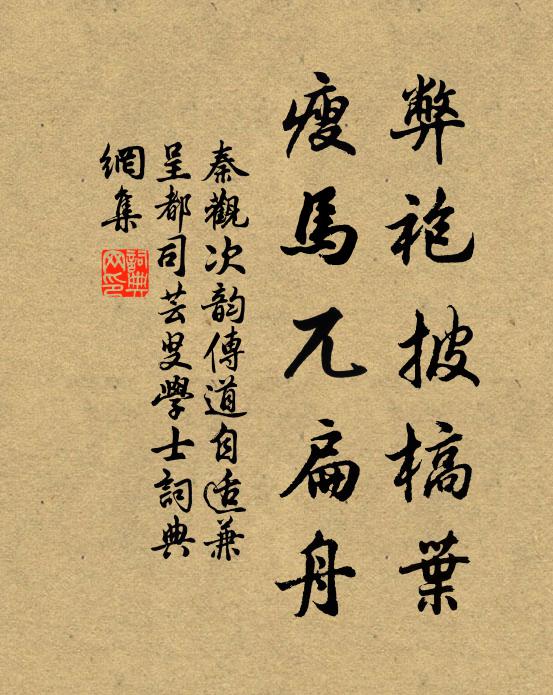 弊袍披槁葉
瘦馬兀扁舟
秦觀次韵傳道自适兼
呈都司芸叟學士詞典
網集
詞典
网印